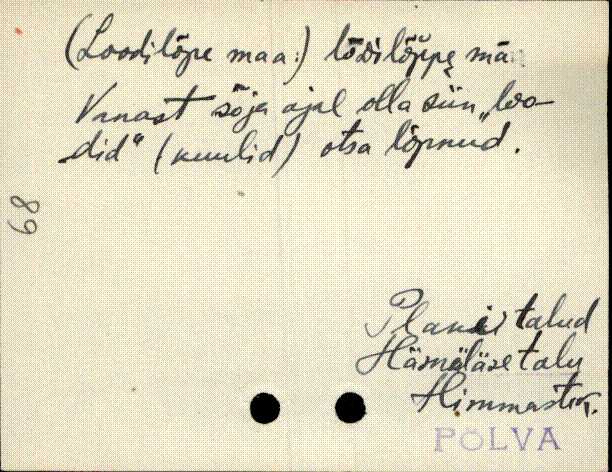 (Loodilõpe maa:) lodilõppe mä
Vanast sõja ajal olla siin „loo-
did“ (kuulid) otsa lõpnud.
68
talud
Hämäläse talu
Himmaste k.
PÕLVA